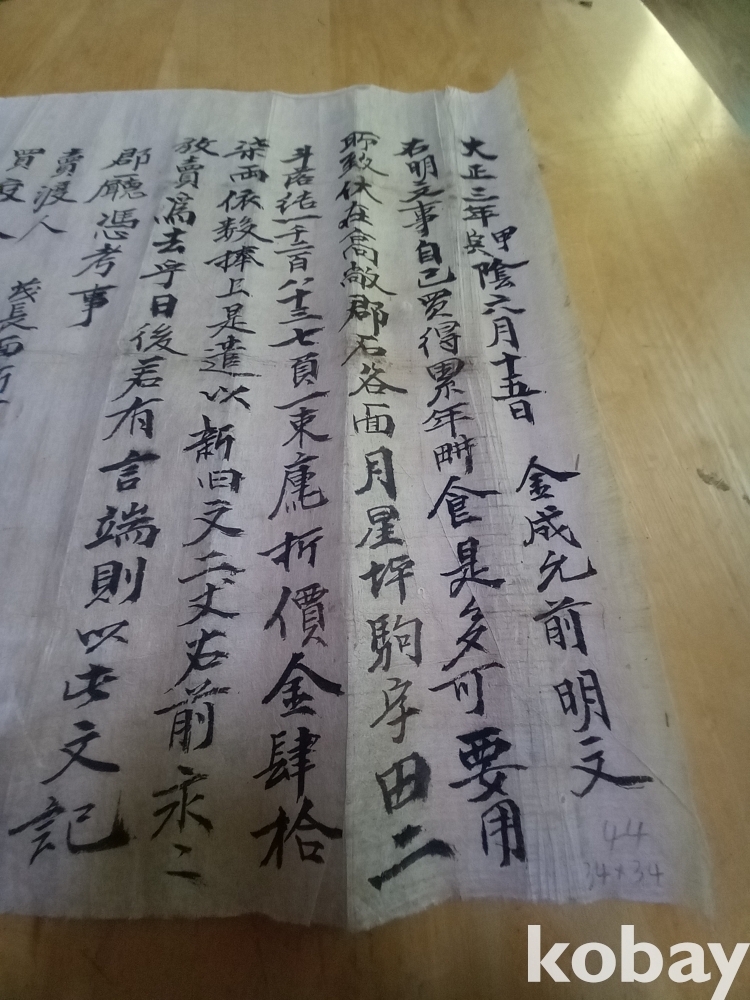 大正三年甲寅陰六月十五日 金成允前明文
右明文事自己買得累年畊食是多可要用
所致伏在高敞郡石谷面月星坪駒字田二
斗落結一千二百八十三七負一束庫折價金肆拾
柒兩依數捧上是遣以新旧文二丈右前永二
放賣爲去乎日後若有言端則以此文記
郡廳憑考事
賣渡人
買渡人 長面
44
34×34
kobay